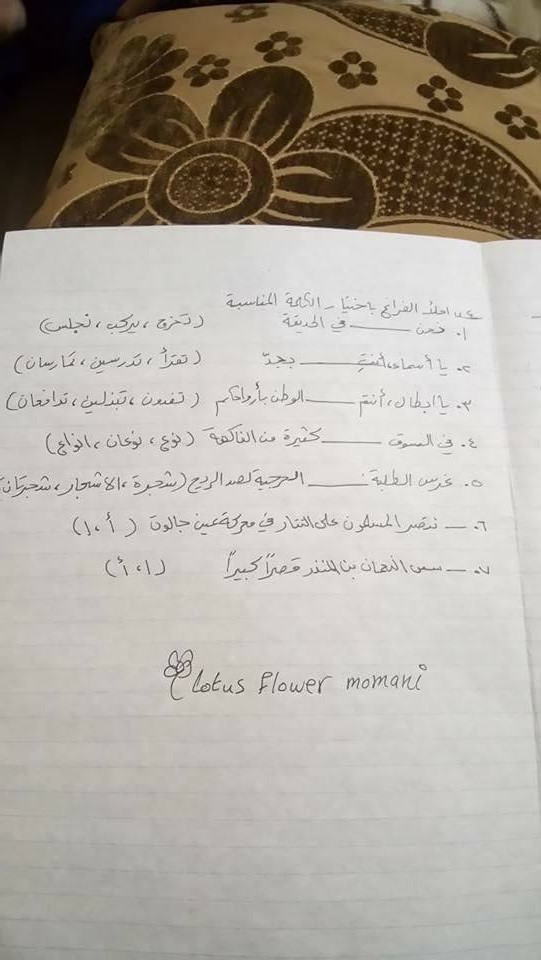 س٤ املأ الفراغ باختيار الكلمة المناسبة
١. نحن ــــــ في الحديقة (تخرج، يركب، نجلس)
٢. يا أسماء، أنتِ ــــــ بجدّ (تقرأ، تدرسين، تمارسان)
٣. يا ابطال، أنتم ــــــ الوطن بأرواحكم (تفدون، تبذلين، تدافعان)
٤. في السوق ــــــ كثيرة من الفاكهة (نوع، نوعان، انواع)
٥. غرس الطلبة ــــــ الحرجية لصد الريح (شجرة، الاشجار، شجرتان)
٦. ــ نتصر المسلمون على التتار في معركة عين جالوت (أ، ا)
٧. ــ سس النعمان بن المنذر قصراً كبيراً (ا، أ)
lotus flower momani